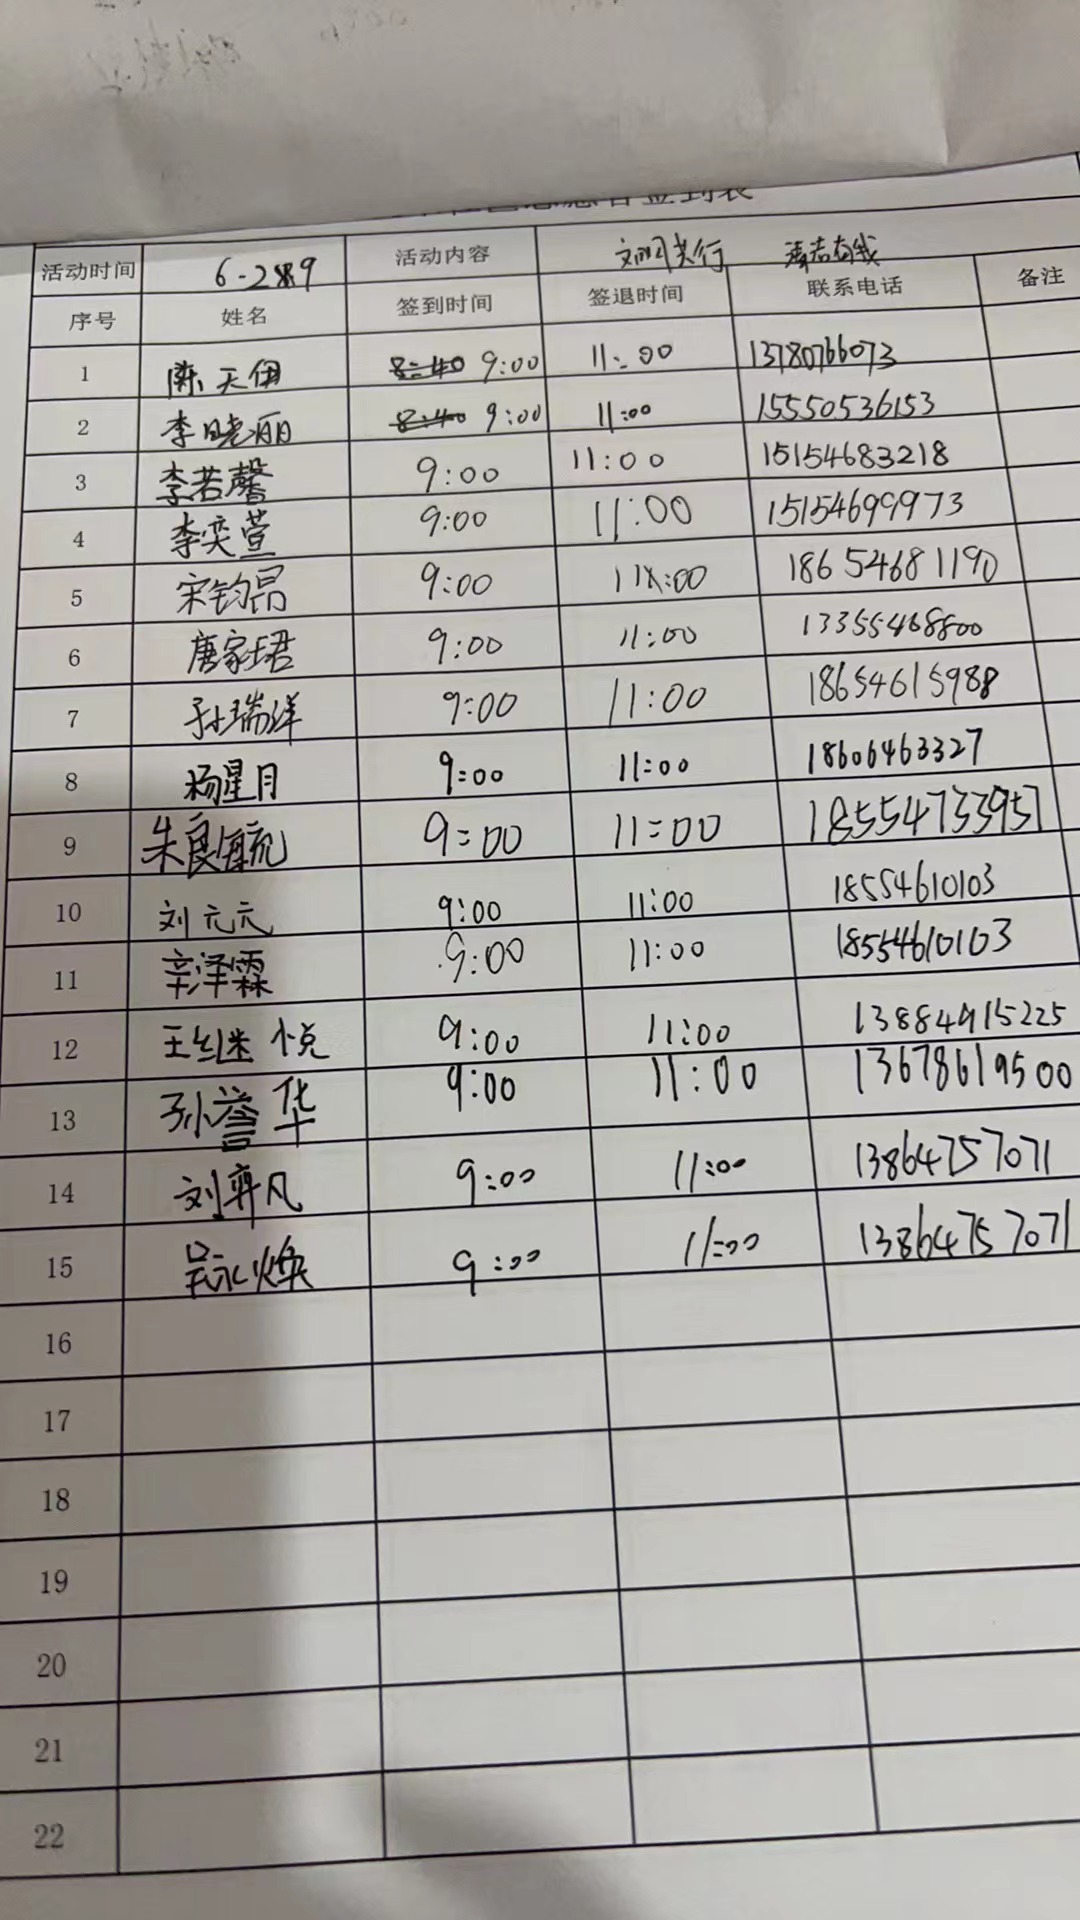 签到表
活动时间 6-29 活动内容 文明关行 清志有我
序号 姓名 签到时间 签退时间 联系电话 备注
1 陈天伊 8:40 9:00 11:00 13780766073
2 李晓丽 8:40 9:00 11:00 15550536153
3 李若馨 9:00 11:00 15154683218
4 李奕萱 9:00 11:00 15154699973
5 宋钧昂 9:00 11:00 18654681190
6 唐家珺 9:00 11:00 13355468800
7 孙瑞洋 9:00 11:00 18654615988
8 杨星月 9:00 11:00 18606463327
9 朱良毓 9:00 11:00 18554733957
10 刘元元 9:00 11:00 18554610103
11 辛泽霖 9:00 11:00 18554610103
12 王继悦 9:00 11:00 13884915225
13 孙誉华 9:00 11:00 13678619500
14 刘弈凡 9:00 11:00 13864757071
15 吴泳焕 9:00 11:00 13864757071
16
17
18
19
20
21
22